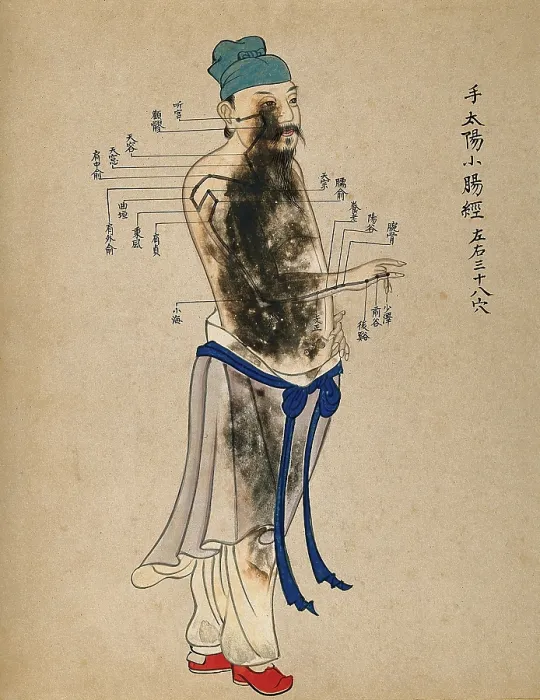 手太陽小腸經 左右三十八穴
听宮
顴髎
天容
天窓
肩中俞
曲垣
肩外俞
秉風
肩貞
天宗
臑俞
養老
陽谷
腕骨
小海
少澤
前谷
後谿